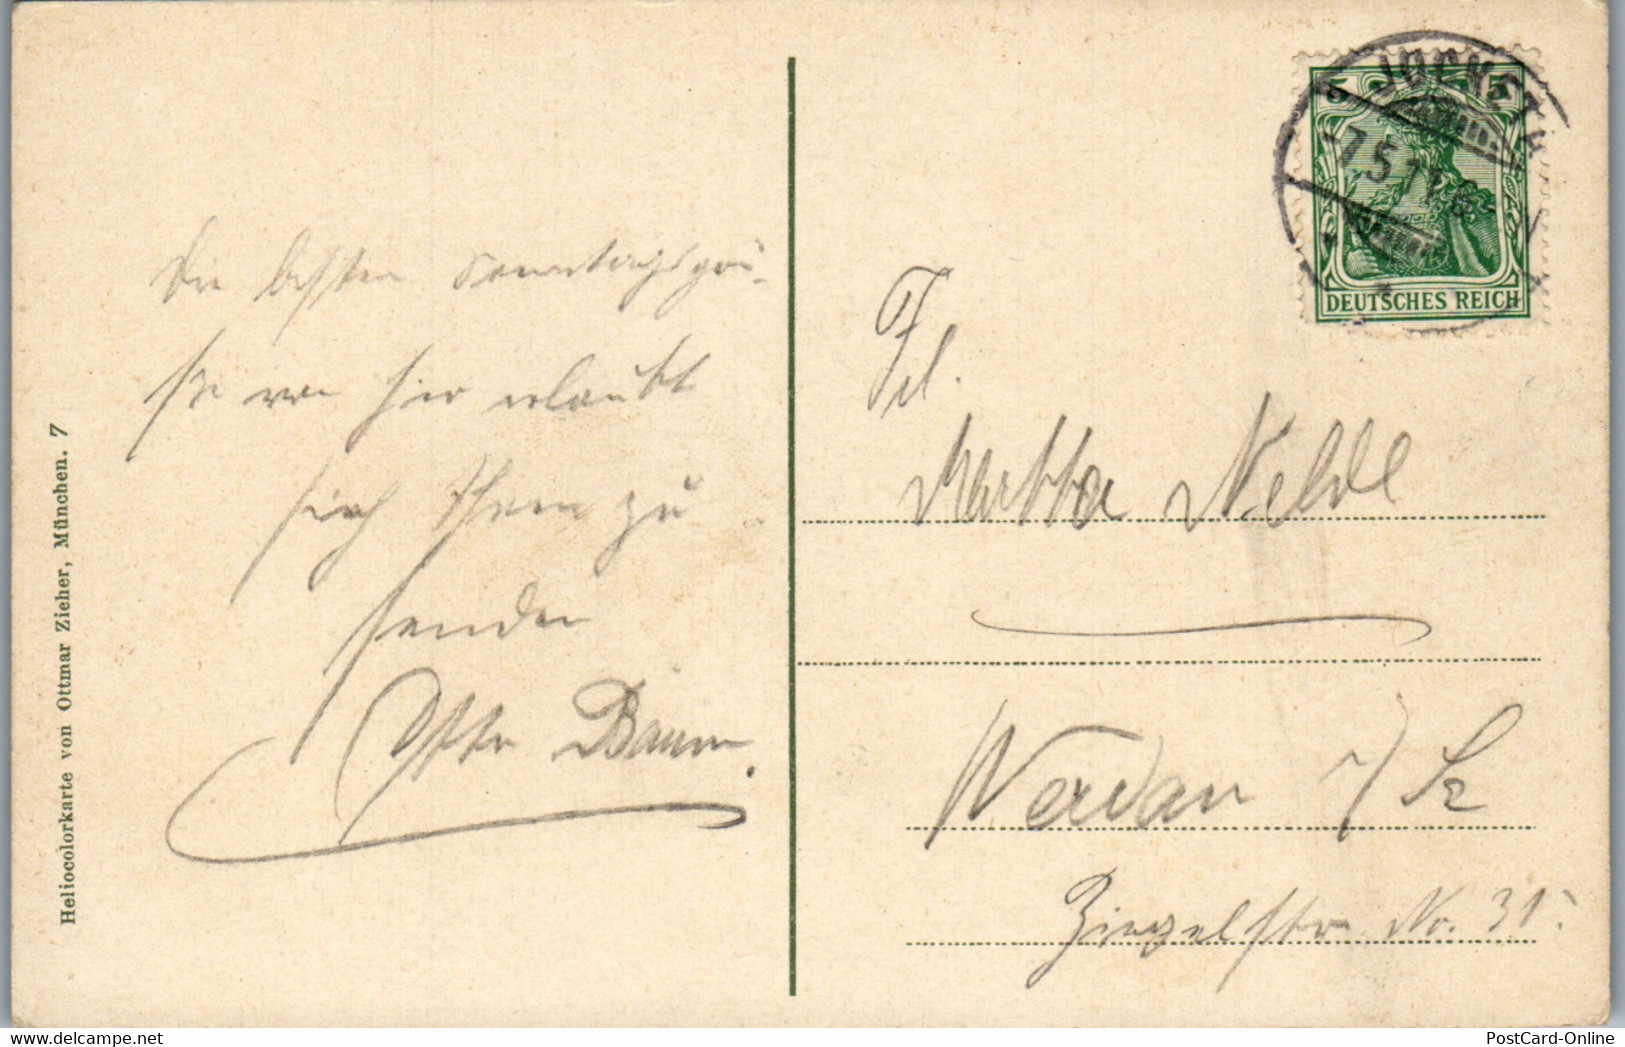 Die besten Sonntagsgrü-
ße von hier erlaubt
sich Ihnen zu
senden
Otto Baum.
Heliocolorkarte von Ottmar Zieher, München. 7
5 5
JOCKETA
-7.5.11. 6-
N
DEUTSCHES REICH
Frl.
Martha Nelde
Werdau i/Sa
Ziegelstr. No. 31.
PostCard-Online